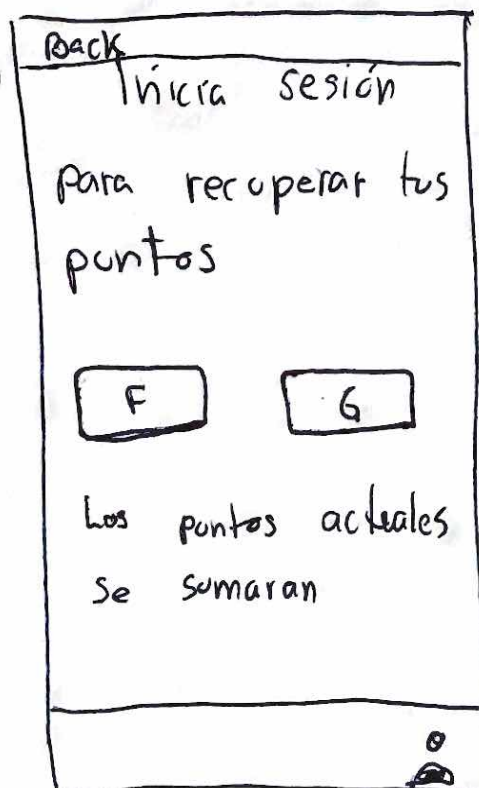 Back
Inicia sesión
para recuperar tus
puntos
F G
Los puntos actuales
se sumaran